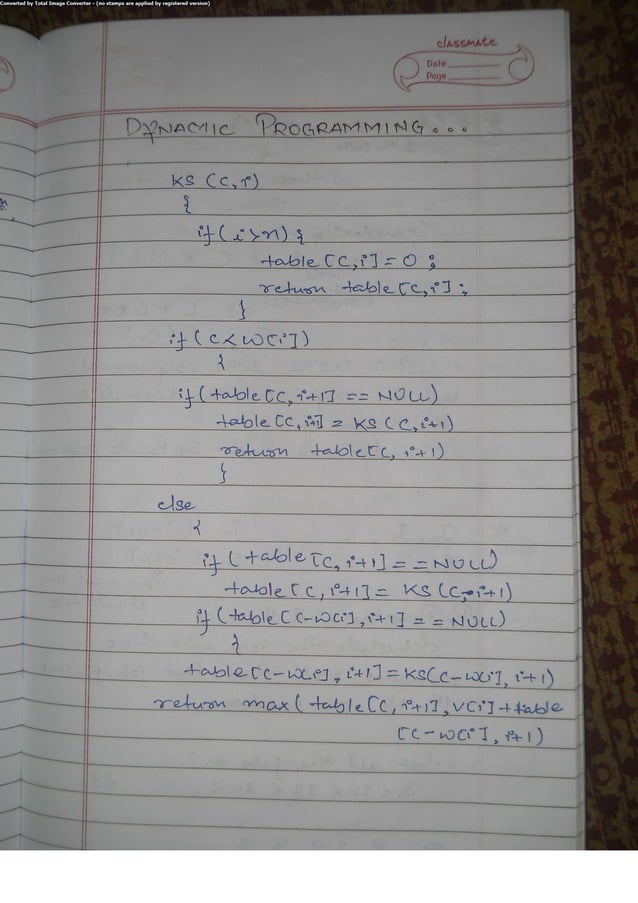 Converted by Total Image Converter - (no stamps are applied by registered version)
classmate
Date
Page
DYNAMIC PROGRAMMING...
KS (C, i)
{
if (i > n) {
table [C, i] = 0 ;
return table [C, i] ;
}
if (C < w[i])
{
if (table [C, i+1] == NULL)
table [C, i+1] = KS (C, i+1)
return table[C, i+1)
}
else
{
if (table [C, i+1] == NULL)
table [C, i+1] = KS (C, i+1)
if (table [C-w[i], i+1] == NULL)
{
table [C-w[i], i+1] = KS(C-w[i], i+1)
return max (table [C, i+1], V[i] + table
[C-w[i], i+1)